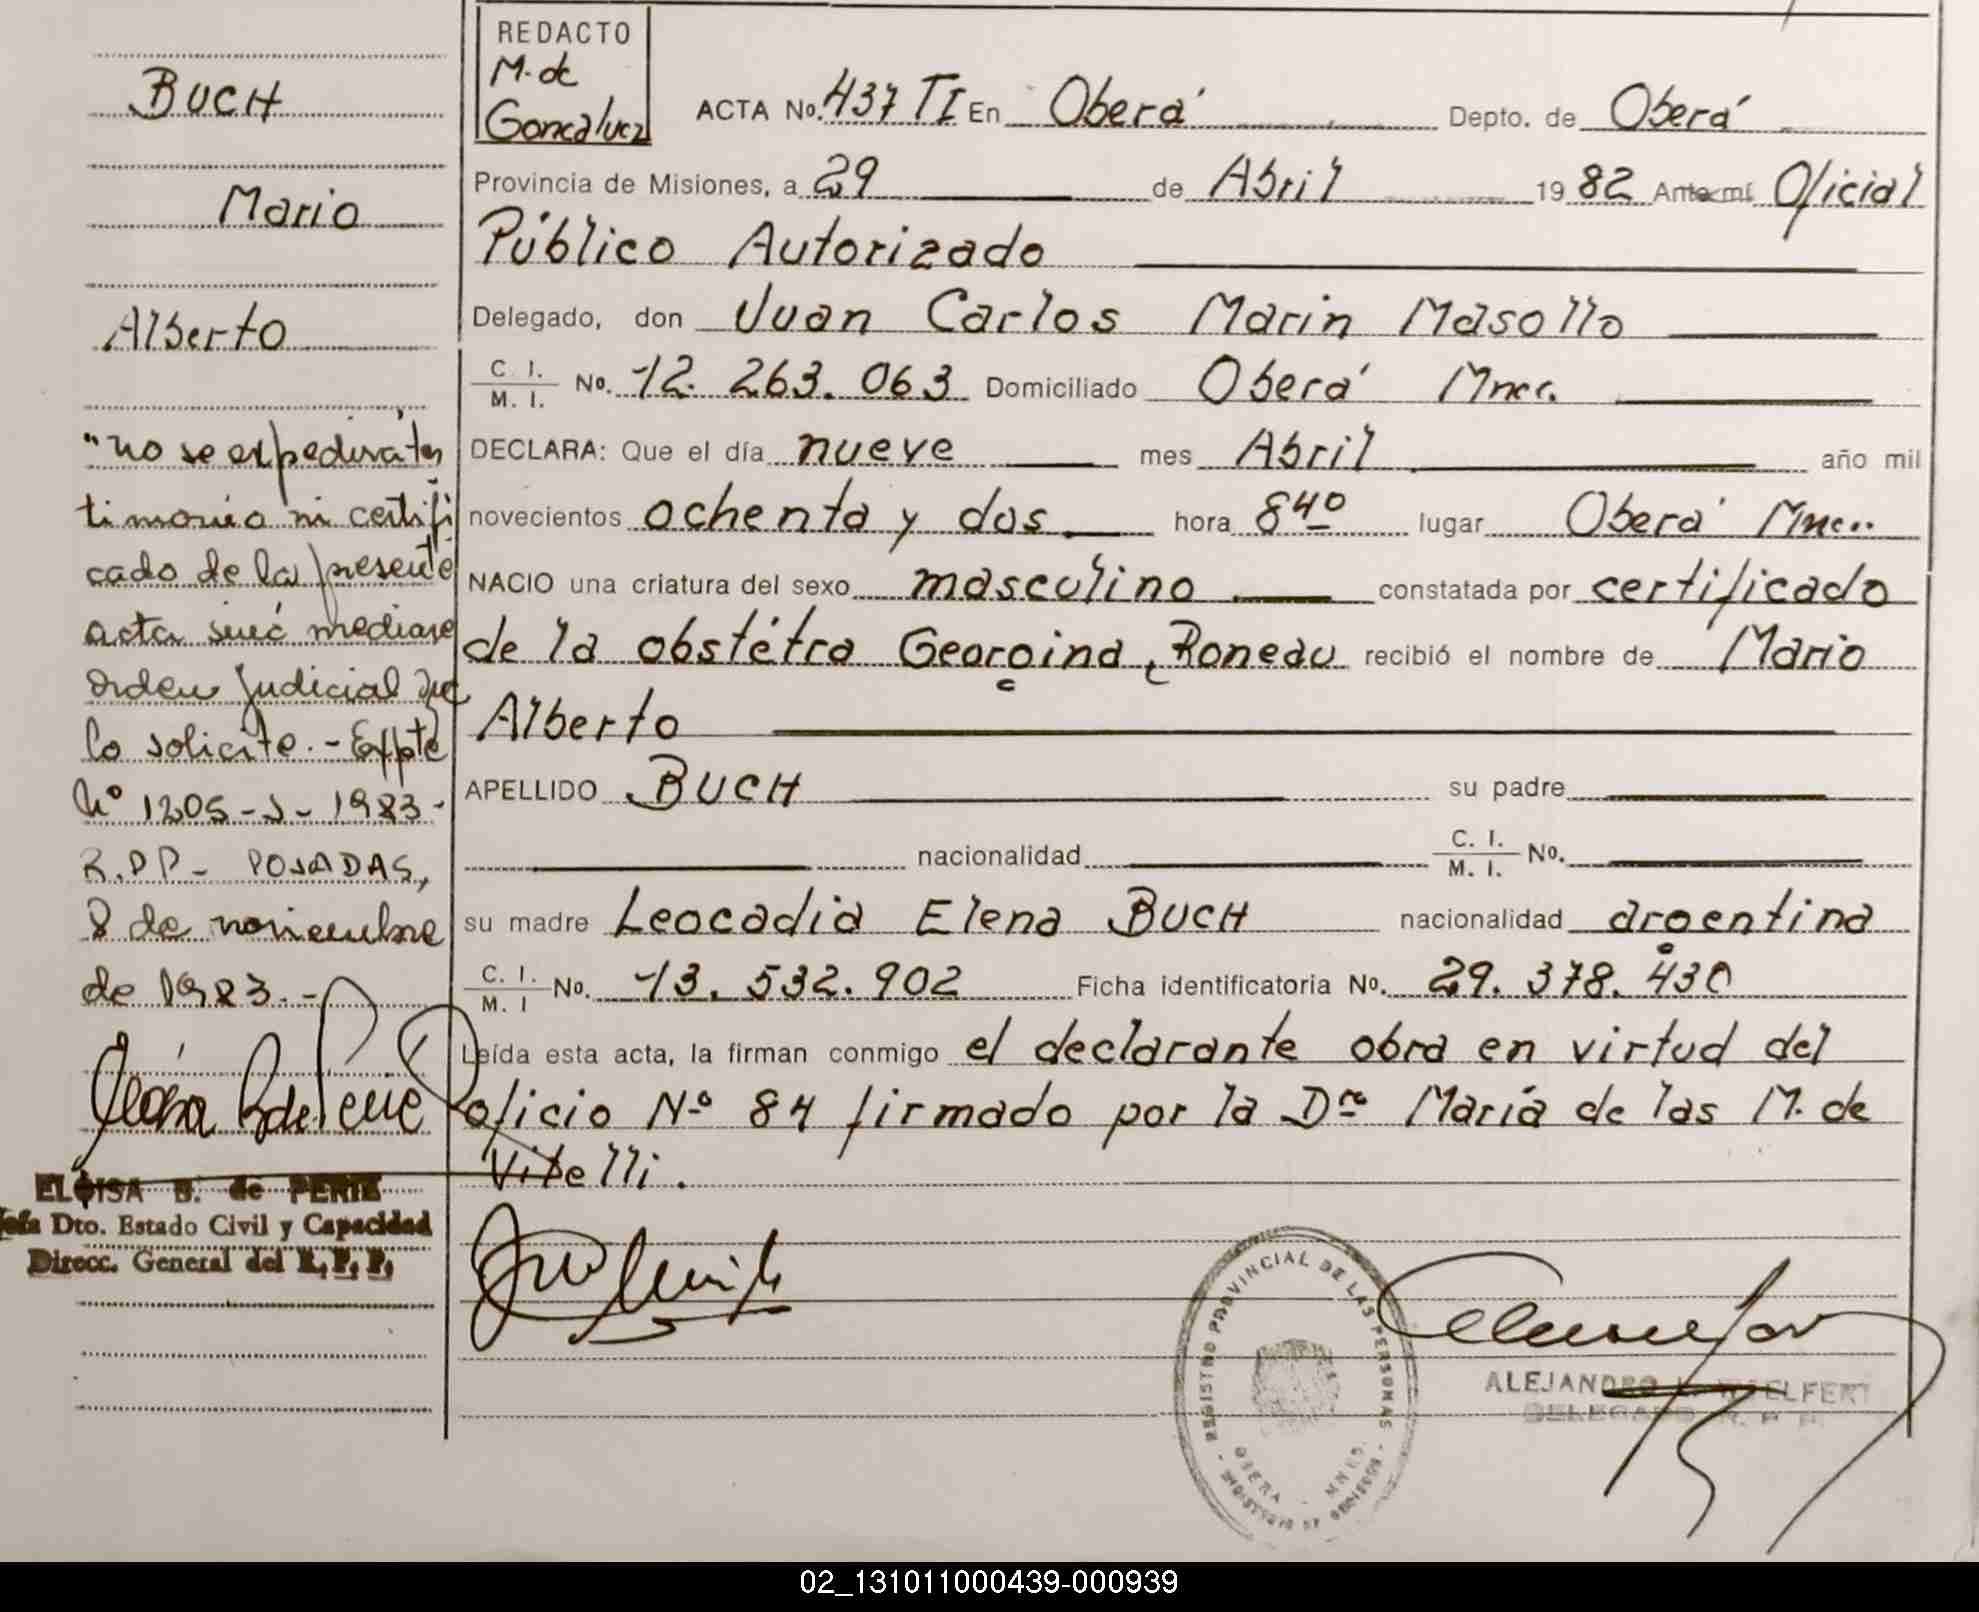 BUCH
Mario
Alberto
"no se expedirá tes
timonio ni certifi
cado de la presente
acta sinó mediante
orden judicial que
lo solicite.- Expte
Nº 1205-S-1983-
R.P.P- POSADAS,
8 de noviembre
de 1983.-
ELOISA B. de PERIE
Jefa Dto. Estado Civil y Capacidad
Direcc. General del R. P. P.
REDACTO
M. de
Goncalvez
ACTA No. 437 TI En Oberá Depto. de Oberá
Provincia de Misiones, a 29 de Abril 1982 Ante mí Oficial
Público Autorizado
Delegado, don Juan Carlos Marin Masollo
C. I. / M. I. No. 12.263.063 Domiciliado Oberá Mnes.
DECLARA: Que el día nueve mes Abril año mil
novecientos ochenta y dos hora 8 40 lugar Oberá Mnes..
NACIO una criatura del sexo masculino constatada por certificado
de la obstétra Georgina Roneau recibió el nombre de Mario
Alberto
APELLIDO BUCH su padre
nacionalidad C. I. / M. I. No.
su madre Leocadia Elena BUCH nacionalidad argentina
C. I. / M. I No. 13.532.902 Ficha identificatoria No. 29.378.430
Leída esta acta, la firman conmigo el declarante obra en virtud del
oficio Nº 84 firmado por la Dra María de las M. de
Vitelli.
REGISTRO PROVINCIAL DE LAS PERSONAS
OBERA - MNES.
MINISTERIO DE GOBIERNO
ALEJANDRO
DELEGADO R. P. P.
02_131011000439-000939